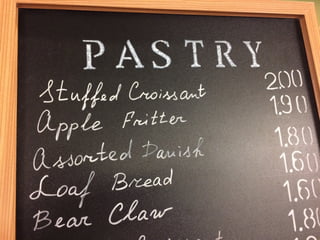 PASTRY
Stuffed Croissant 2.00
Apple Fritter 1.90
Assorted Danish 1.80
Loaf Bread 1.60
Bear Claw 1.60
1.80